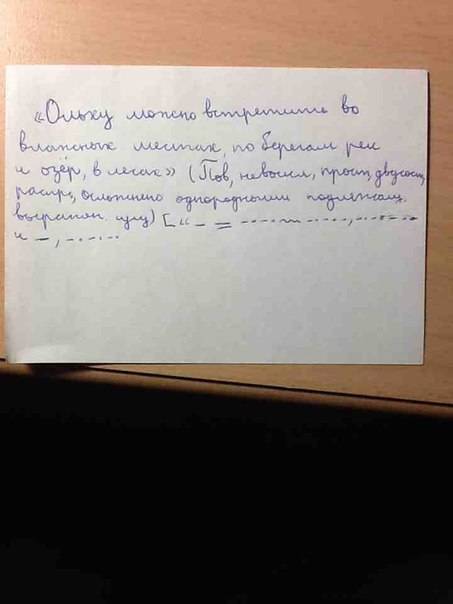 «Ольху можно встретить во
влажных местах, по берегам рек
и озёр, в лесах» (Пов, невоскл, прост, двусост,
распр, осложнено однородными подлежащ.
выражен. сущ) [„ – = -·-·-·- -·-·-, -·-·-·-
и –, -·-·-·-